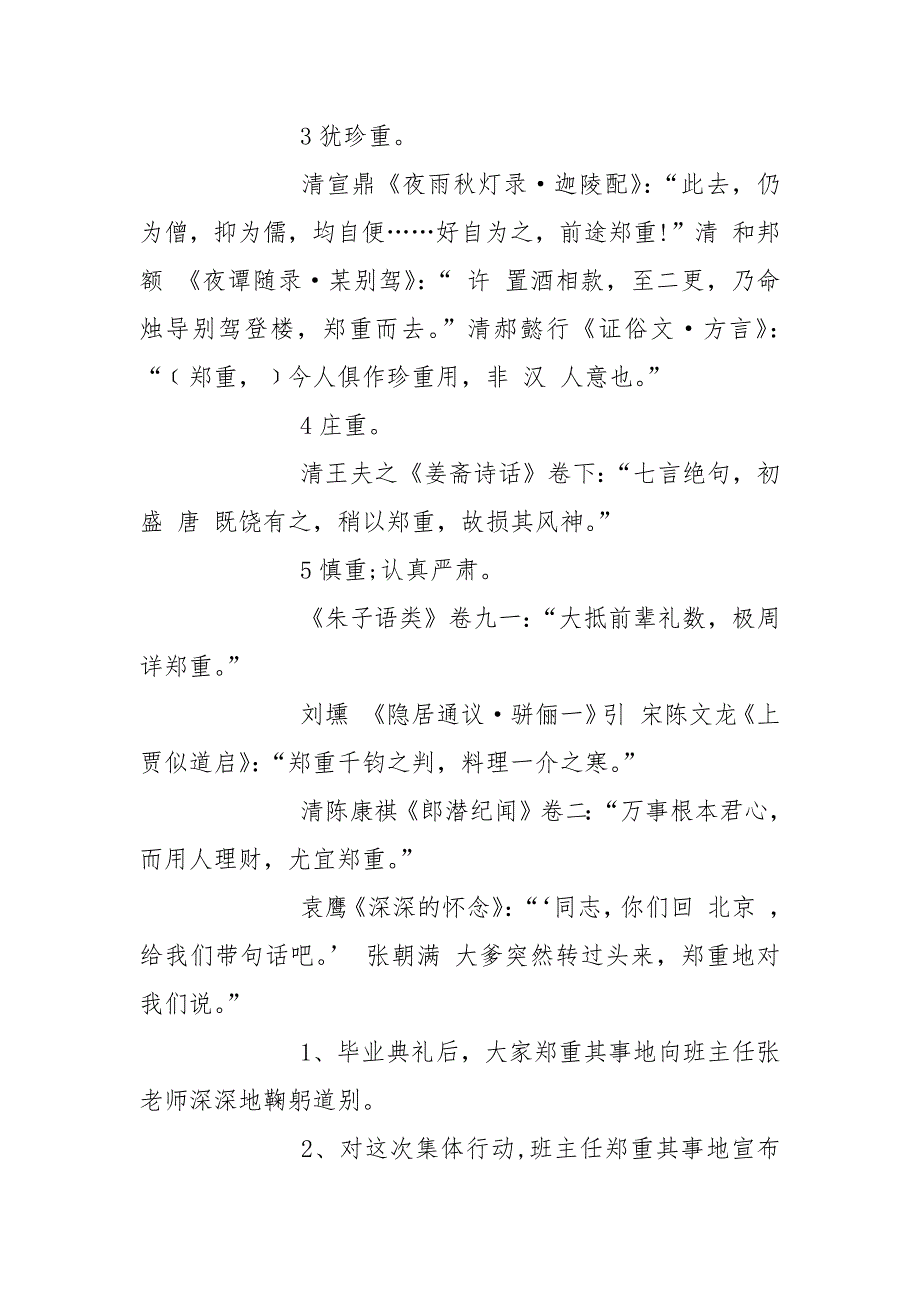 3犹珍重。
清宣鼎《夜雨秋灯录·迦陵配》：“此去，仍
为僧，抑为儒，均自便……好自为之，前途郑重!”清 和邦
额 《夜谭随录·某别驾》：“ 许 置酒相款，至二更，乃命
烛导别驾登楼，郑重而去。”清郝懿行《证俗文·方言》：
“﹙郑重，﹚今人俱作珍重用，非 汉 人意也。”
4庄重。
清王夫之《姜斋诗话》卷下：“七言绝句，初
盛 唐 既饶有之，稍以郑重，故损其风神。”
5慎重;认真严肃。
《朱子语类》卷九一：“大抵前辈礼数，极周
详郑重。”
刘壎 《隐居通议·骈俪一》引 宋陈文龙《上
贾似道启》：“郑重千钧之判，料理一介之寒。”
清陈康祺《郎潜纪闻》卷二：“万事根本君心，
而用人理财，尤宜郑重。”
袁鹰《深深的怀念》：“‘同志，你们回 北京 ，
给我们带句话吧。’ 张朝满 大爹突然转过头来，郑重地对
我们说。”
1、毕业典礼后，大家郑重其事地向班主任张
老师深深地鞠躬道别。
2、对这次集体行动,班主任郑重其事地宣布